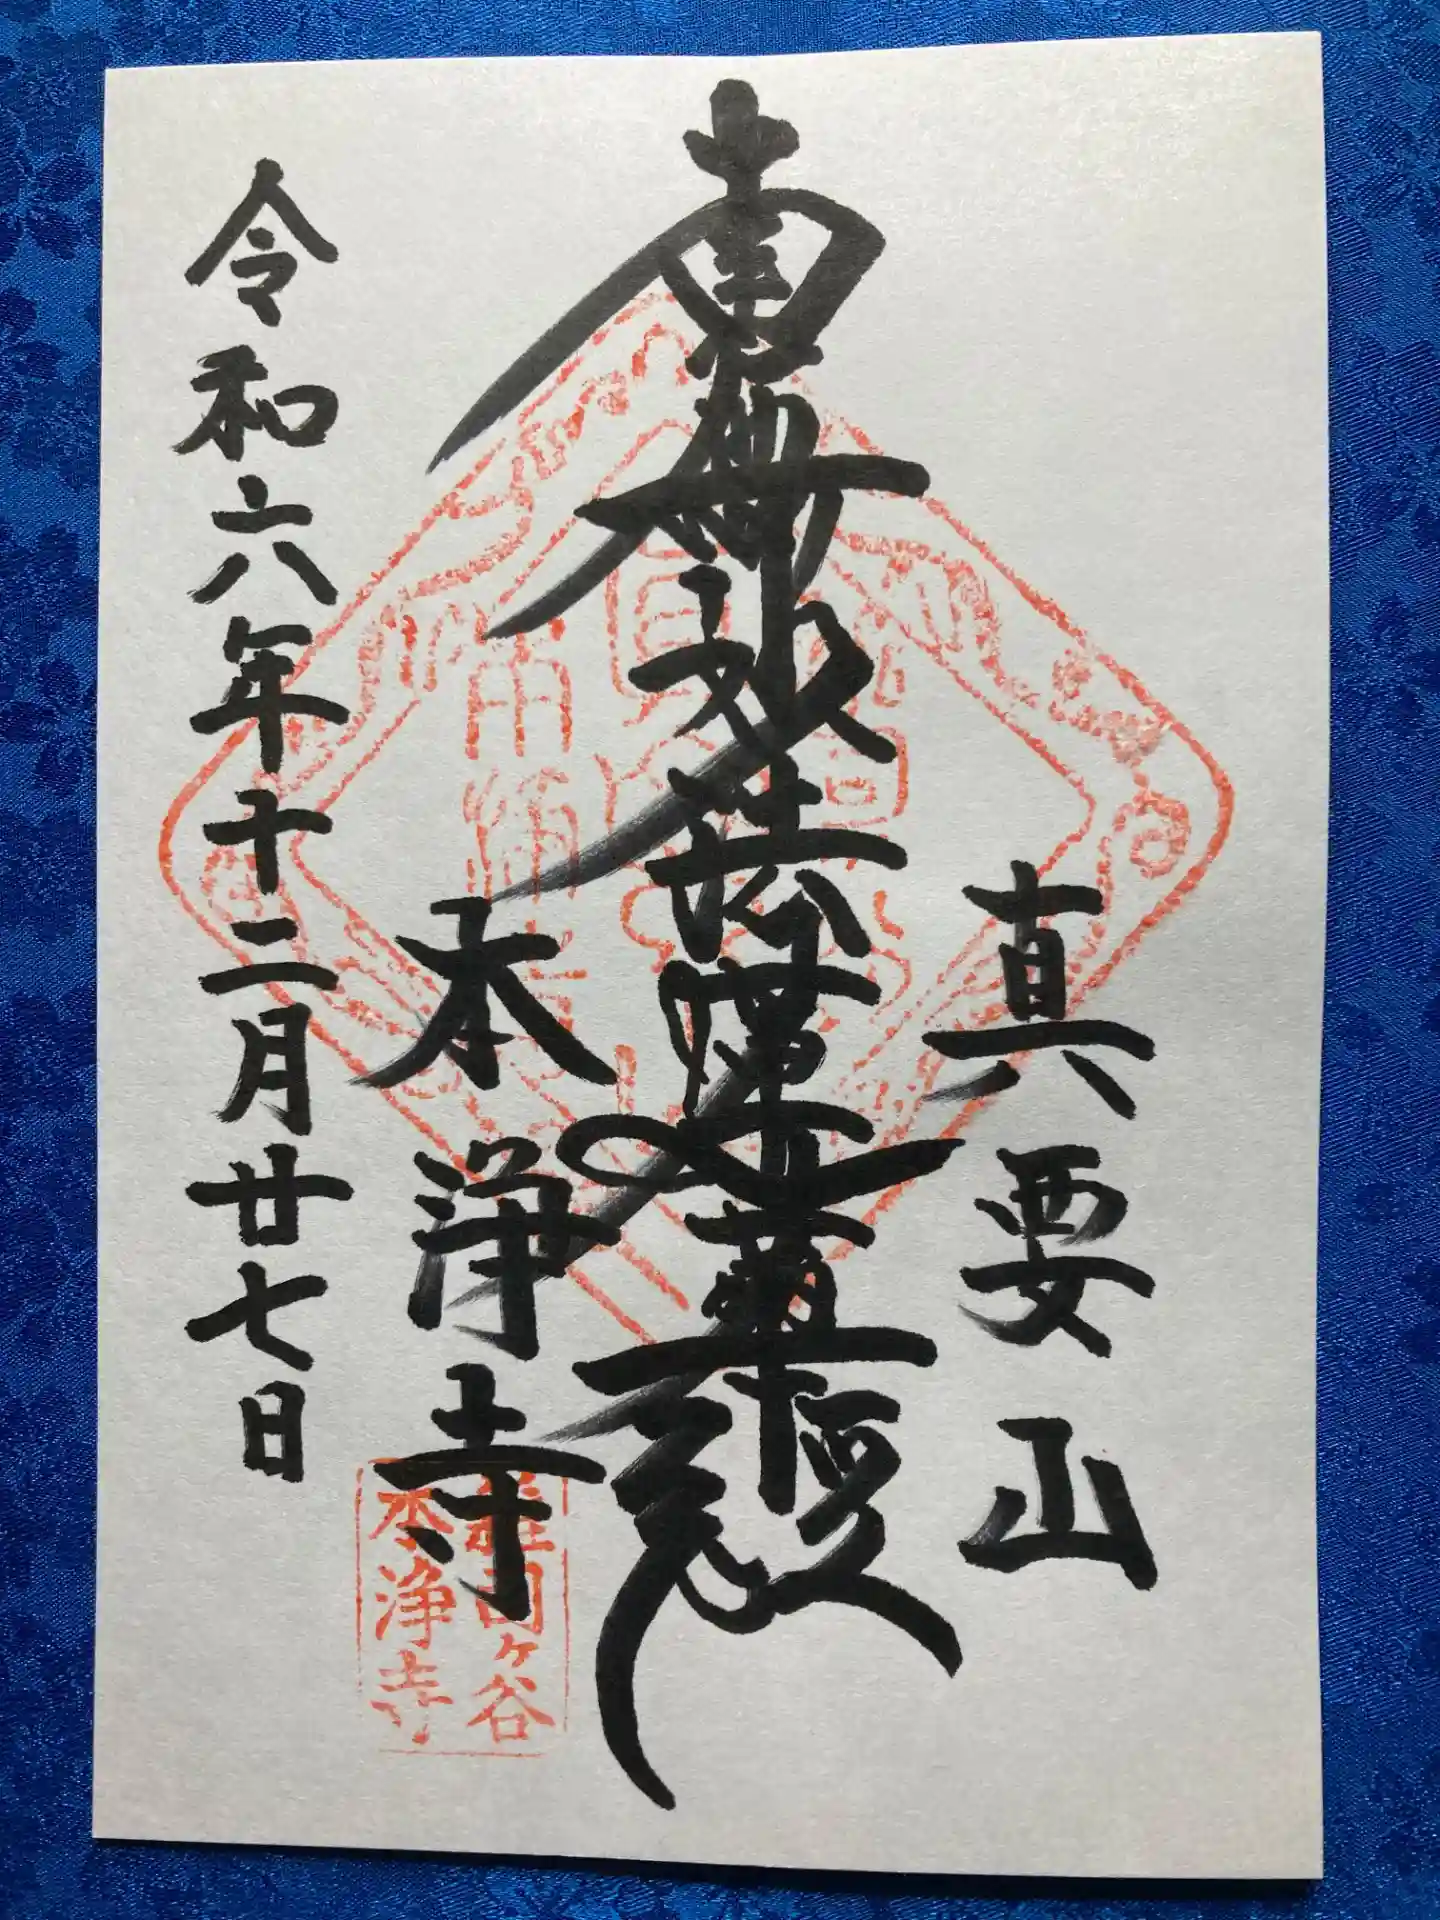 真要山
南無妙法蓮華経
本浄寺
令和六年十二月廿七日
雑司ヶ谷
本浄寺